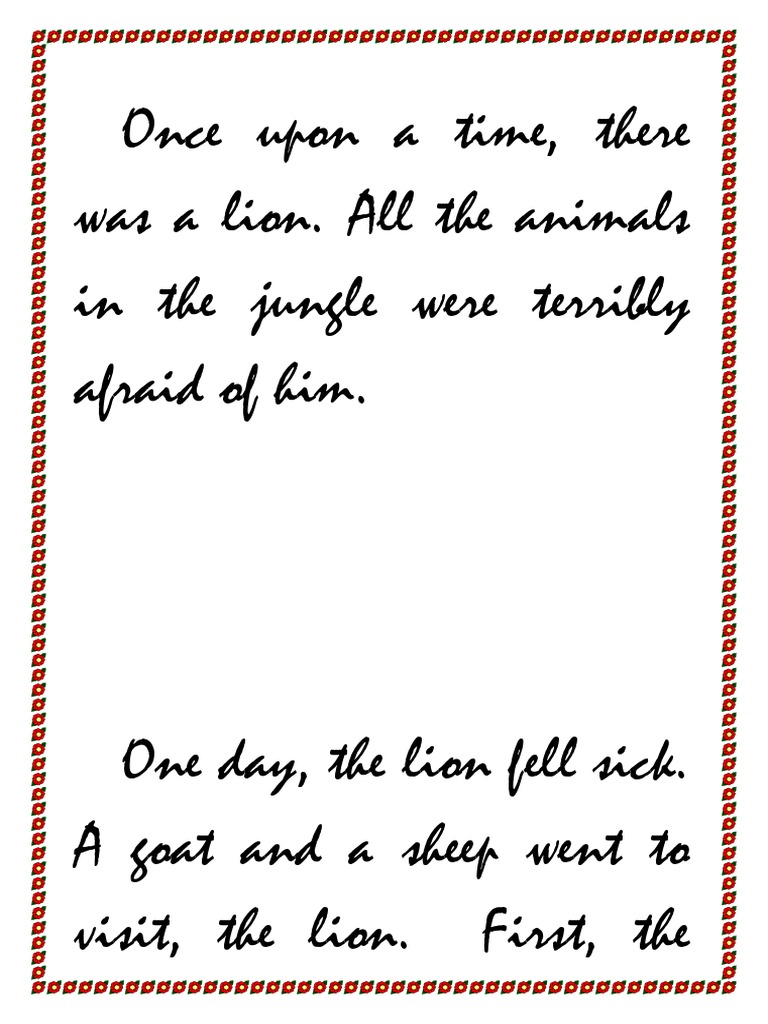 Once upon a time, there
was a lion. All the animals
in the jungle were terribly
afraid of him.
One day, the lion fell sick.
A goat and a sheep went to
visit, the lion. First, the